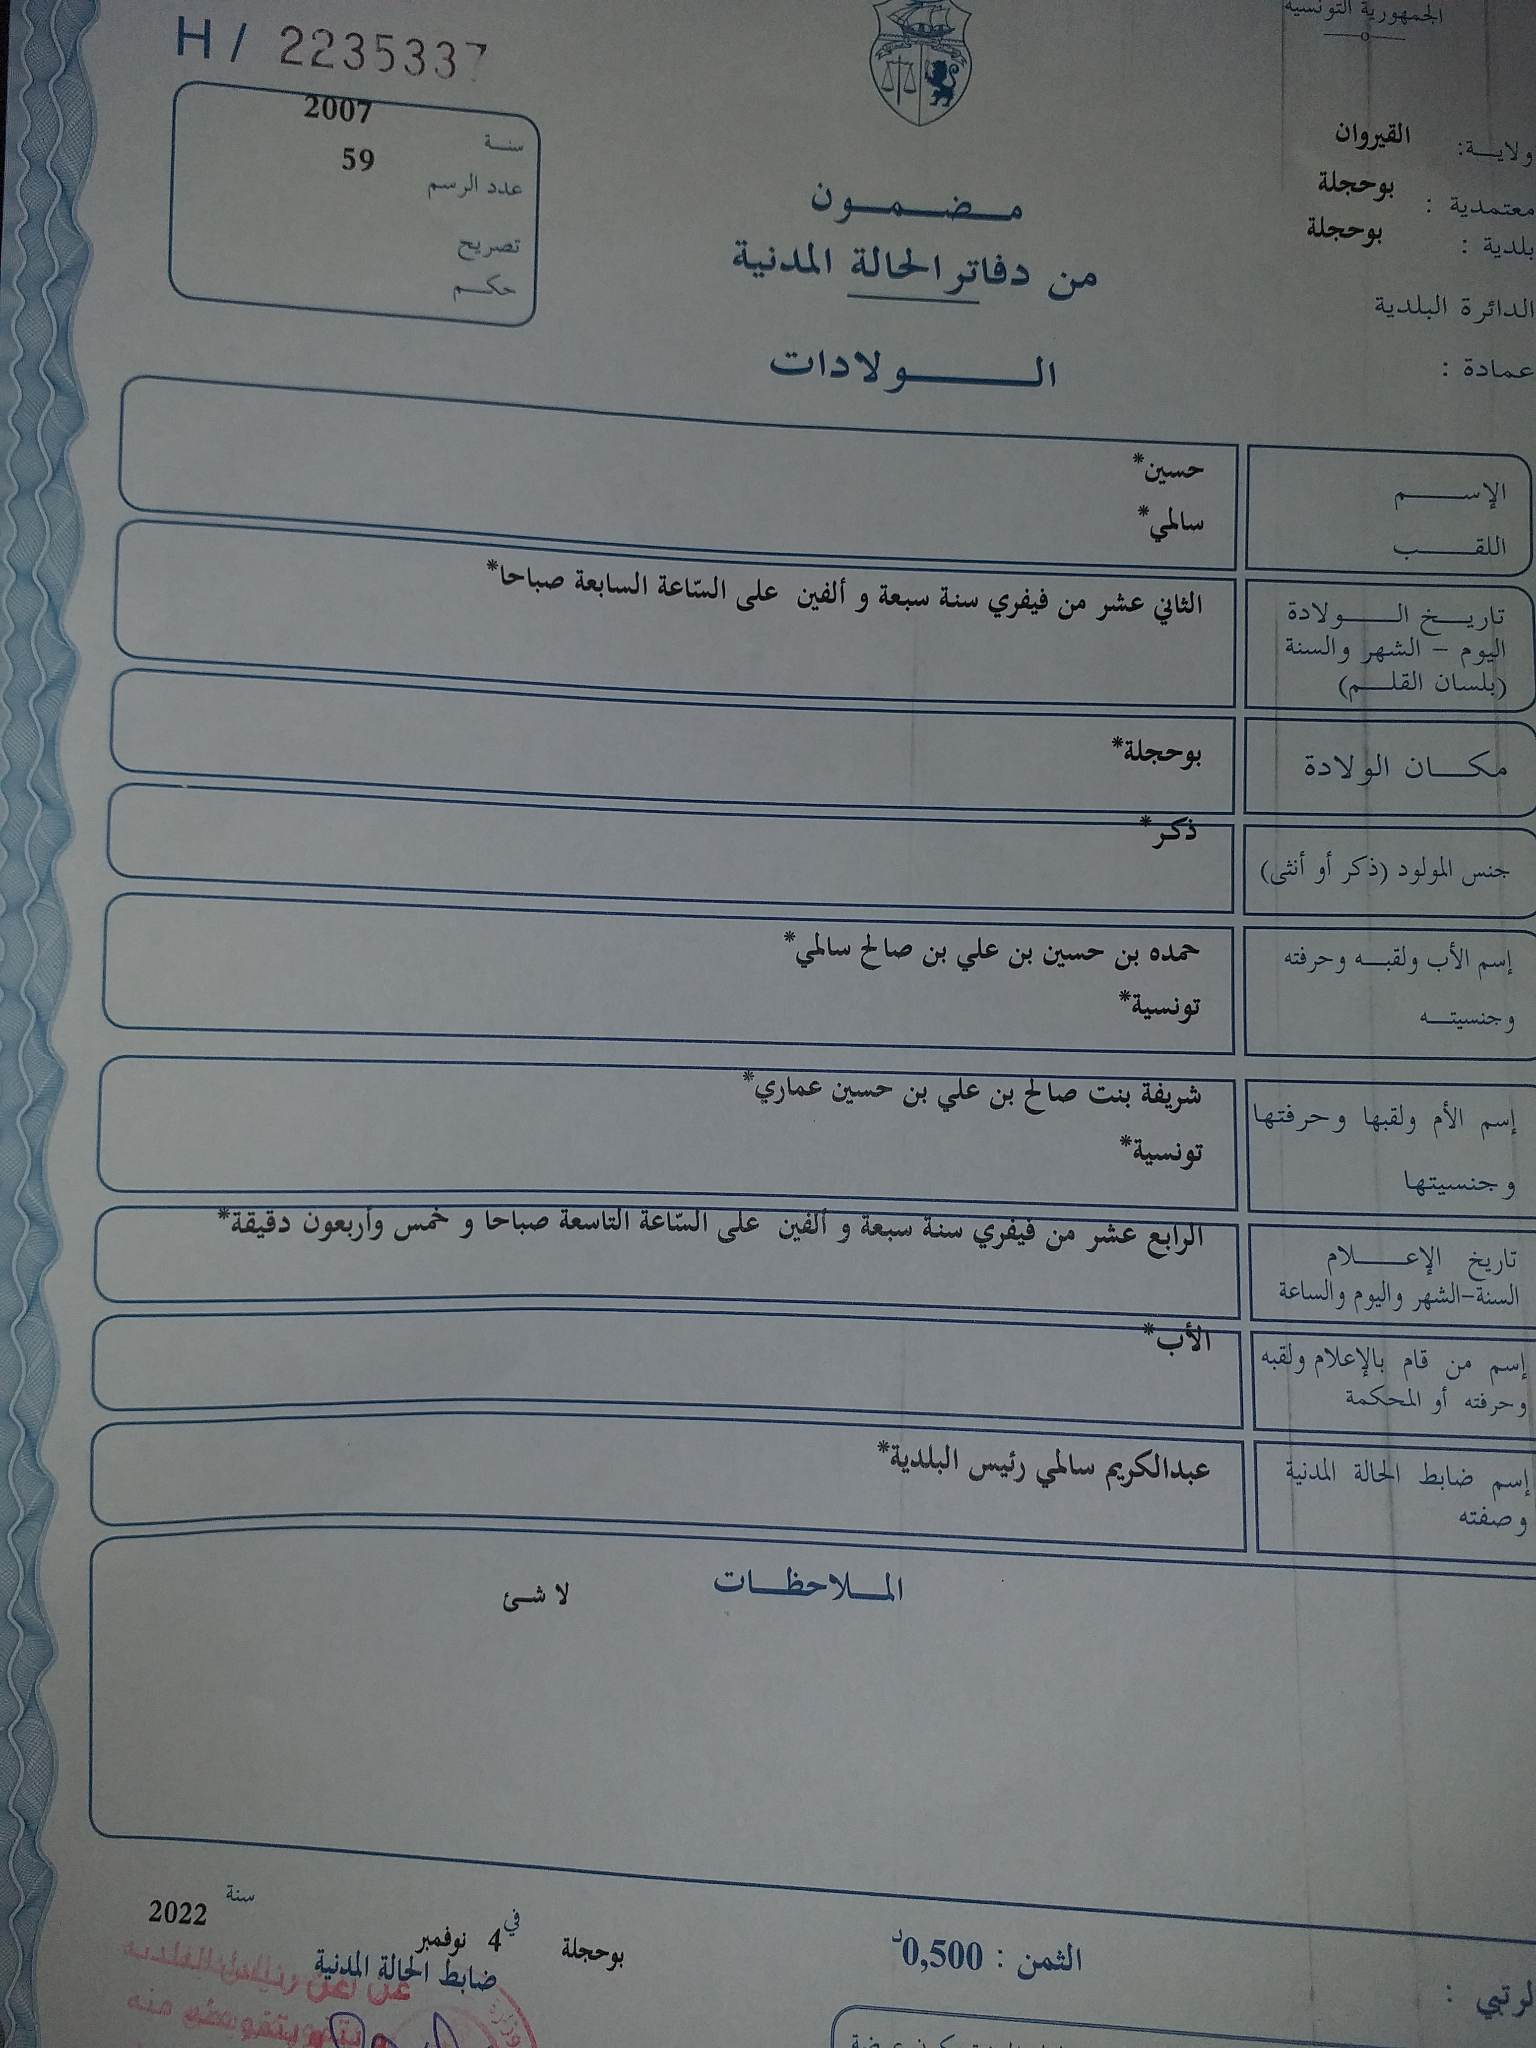 الجمهورية التونسية
H / 2235337
سنة 2007
عدد الرسم 59
تصريح
حكم
ولاية: القيروان
معتمدية : بوحجلة
بلدية : بوحجلة
الدائرة البلدية
عمادة :
مضمون
من دفاتر الحالة المدنية
الولادات
الإسم حسين*
اللقب سالمي*
تاريخ الولادة
اليوم - الشهر والسنة
(بلسان القلم)
الثاني عشر من فيفري سنة سبعة و ألفين على السّاعة السابعة صباحا*
مكان الولادة بوحجلة*
جنس المولود (ذكر أو أنثى) ذكر*
إسم الأب ولقبه وحرفته
وجنسيته
حمده بن حسين بن علي بن صالح سالمي*
تونسية*
إسم الأم ولقبها وحرفتها
وجنسيتها
شريفة بنت صالح بن علي بن حسين عماري*
تونسية*
تاريخ الإعلام
السنة-الشهر واليوم والساعة
الرابع عشر من فيفري سنة سبعة و ألفين على السّاعة التاسعة صباحا و خمس وأربعون دقيقة*
إسم من قام بالإعلام ولقبه
وحرفته أو المحكمة
الأب*
إسم ضابط الحالة المدنية
وصفته
عبدالكريم سالمي رئيس البلدية*
الملاحظات
لا شئ
بوحجلة في 4 نوفمبر سنة 2022
ضابط الحالة المدنية
الثمن : 0,500د